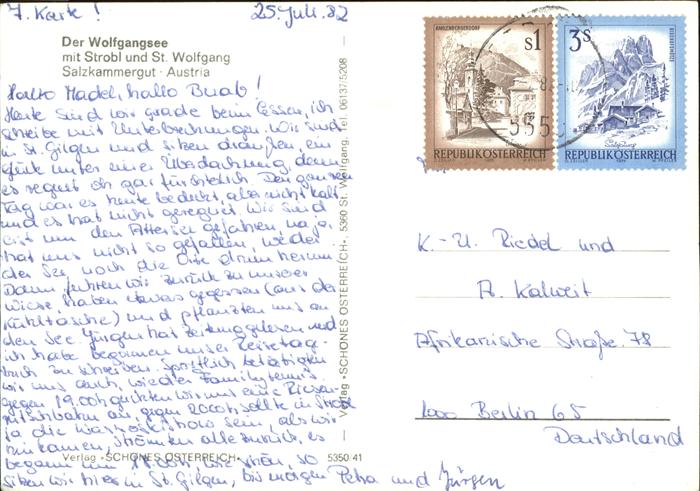 7. Karte! 25. Juli 82
Der Wolfgangsee
mit Strobl und St. Wolfgang
Salzkammergut · Austria
Hallo Madel, hallo Buab!
Heute sind wir grade beim Essen, ich
schreibe mit Unterbrechungen. Wir sind
in St. Gilgen und sitzen draußen, ein
Glück unter einer Überdachung, denn
es regnet gar fürchterlich. Den ganzen
Tag war es heute bedeckt, aber nicht kalt
und es hat nicht geregnet. Wir sind
erst um den Attersee gefahren, na ja,
hat uns nicht so gefallen, weder
der See, noch die Orte drum herum.
Dann fuhren wir zurück zu unserer
Wiese, haben etwas gegessen (aus der
Kühltasche) und pflanzten uns an
den See. Jürgen hat Zeitung gelesen und
ich habe begonnen unser Reisetage-
buch zu schreiben. Sportlich betätigten
wir uns auch, wieder Familytennis
gegen 19.00h suchten wir uns eine Riesen-
rutschbahn an, gegen 20.00h sollte in Strobl
ja die show sein, als wir
hinkamen, strömten alle zurück, es
begann um so
sitzen wir hier in St. Gilgen, bis morgen Petra und Jürgen
Verlag »SCHÖNES ÖSTERREICH« 5350/41
Verlag »SCHÖNES ÖSTERREICH«, 5360 St. Wolfgang, Tel. 06137/5208
RABENBERGDORF
S1
REPUBLIK ÖSTERREICH
3S
BISCHOFSMÜTZE
Salzburg
REPUBLIK ÖSTERREICH
K.-U. Riedel und
A. Kalweit
Afrikanische Straße 78
1000 Berlin 65
Deutschland